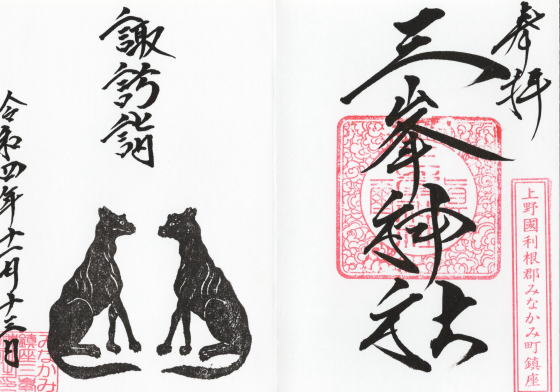 奉拝
三峯神社
上野國利根郡みなかみ町鎮座
諏訪詣
令和四年十一月十三日
みなかみ